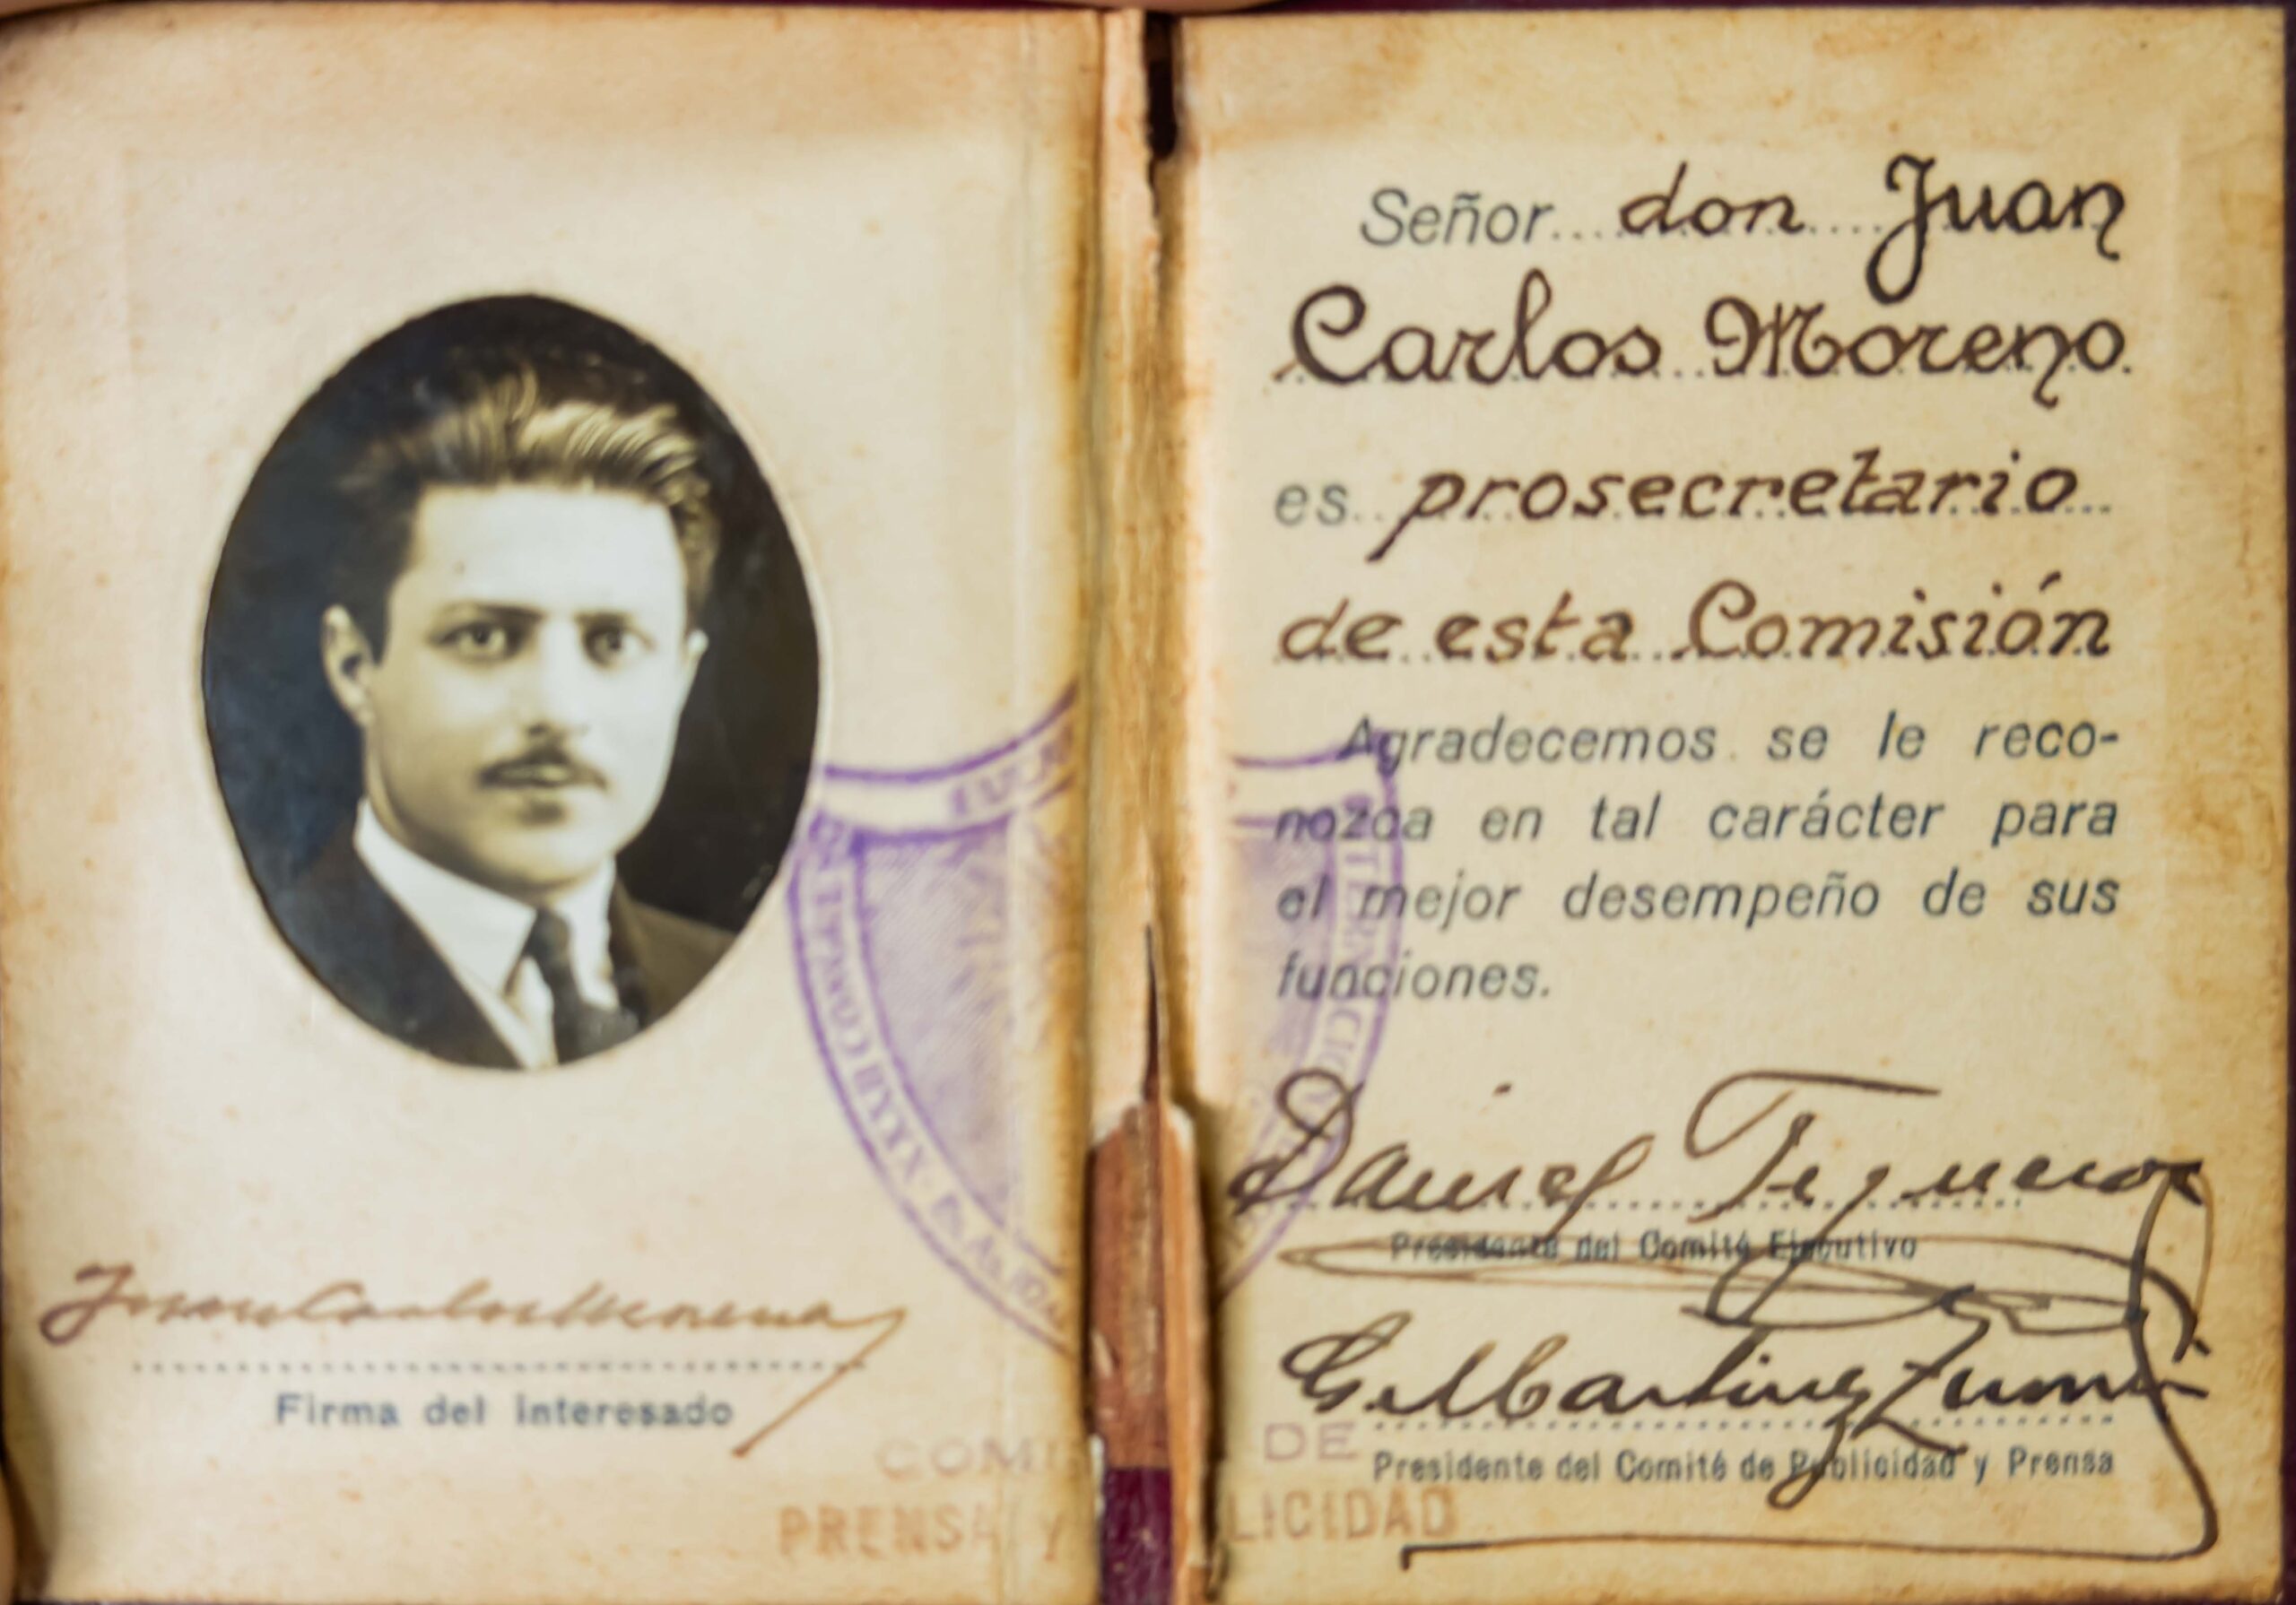 Juan Carlos Moreno
Firma del interesado
Señor don Juan
Carlos Moreno
es prosecretario
de esta Comisión
Agradecemos se le reco-
nozca en tal carácter para
el mejor desempeño de sus
funciones.
Daniel
Presidente del Comité Ejecutivo
G. Martinez
Presidente del Comité de Publicidad y Prensa
XXXII
DE
PRENSA Y LICIDAD